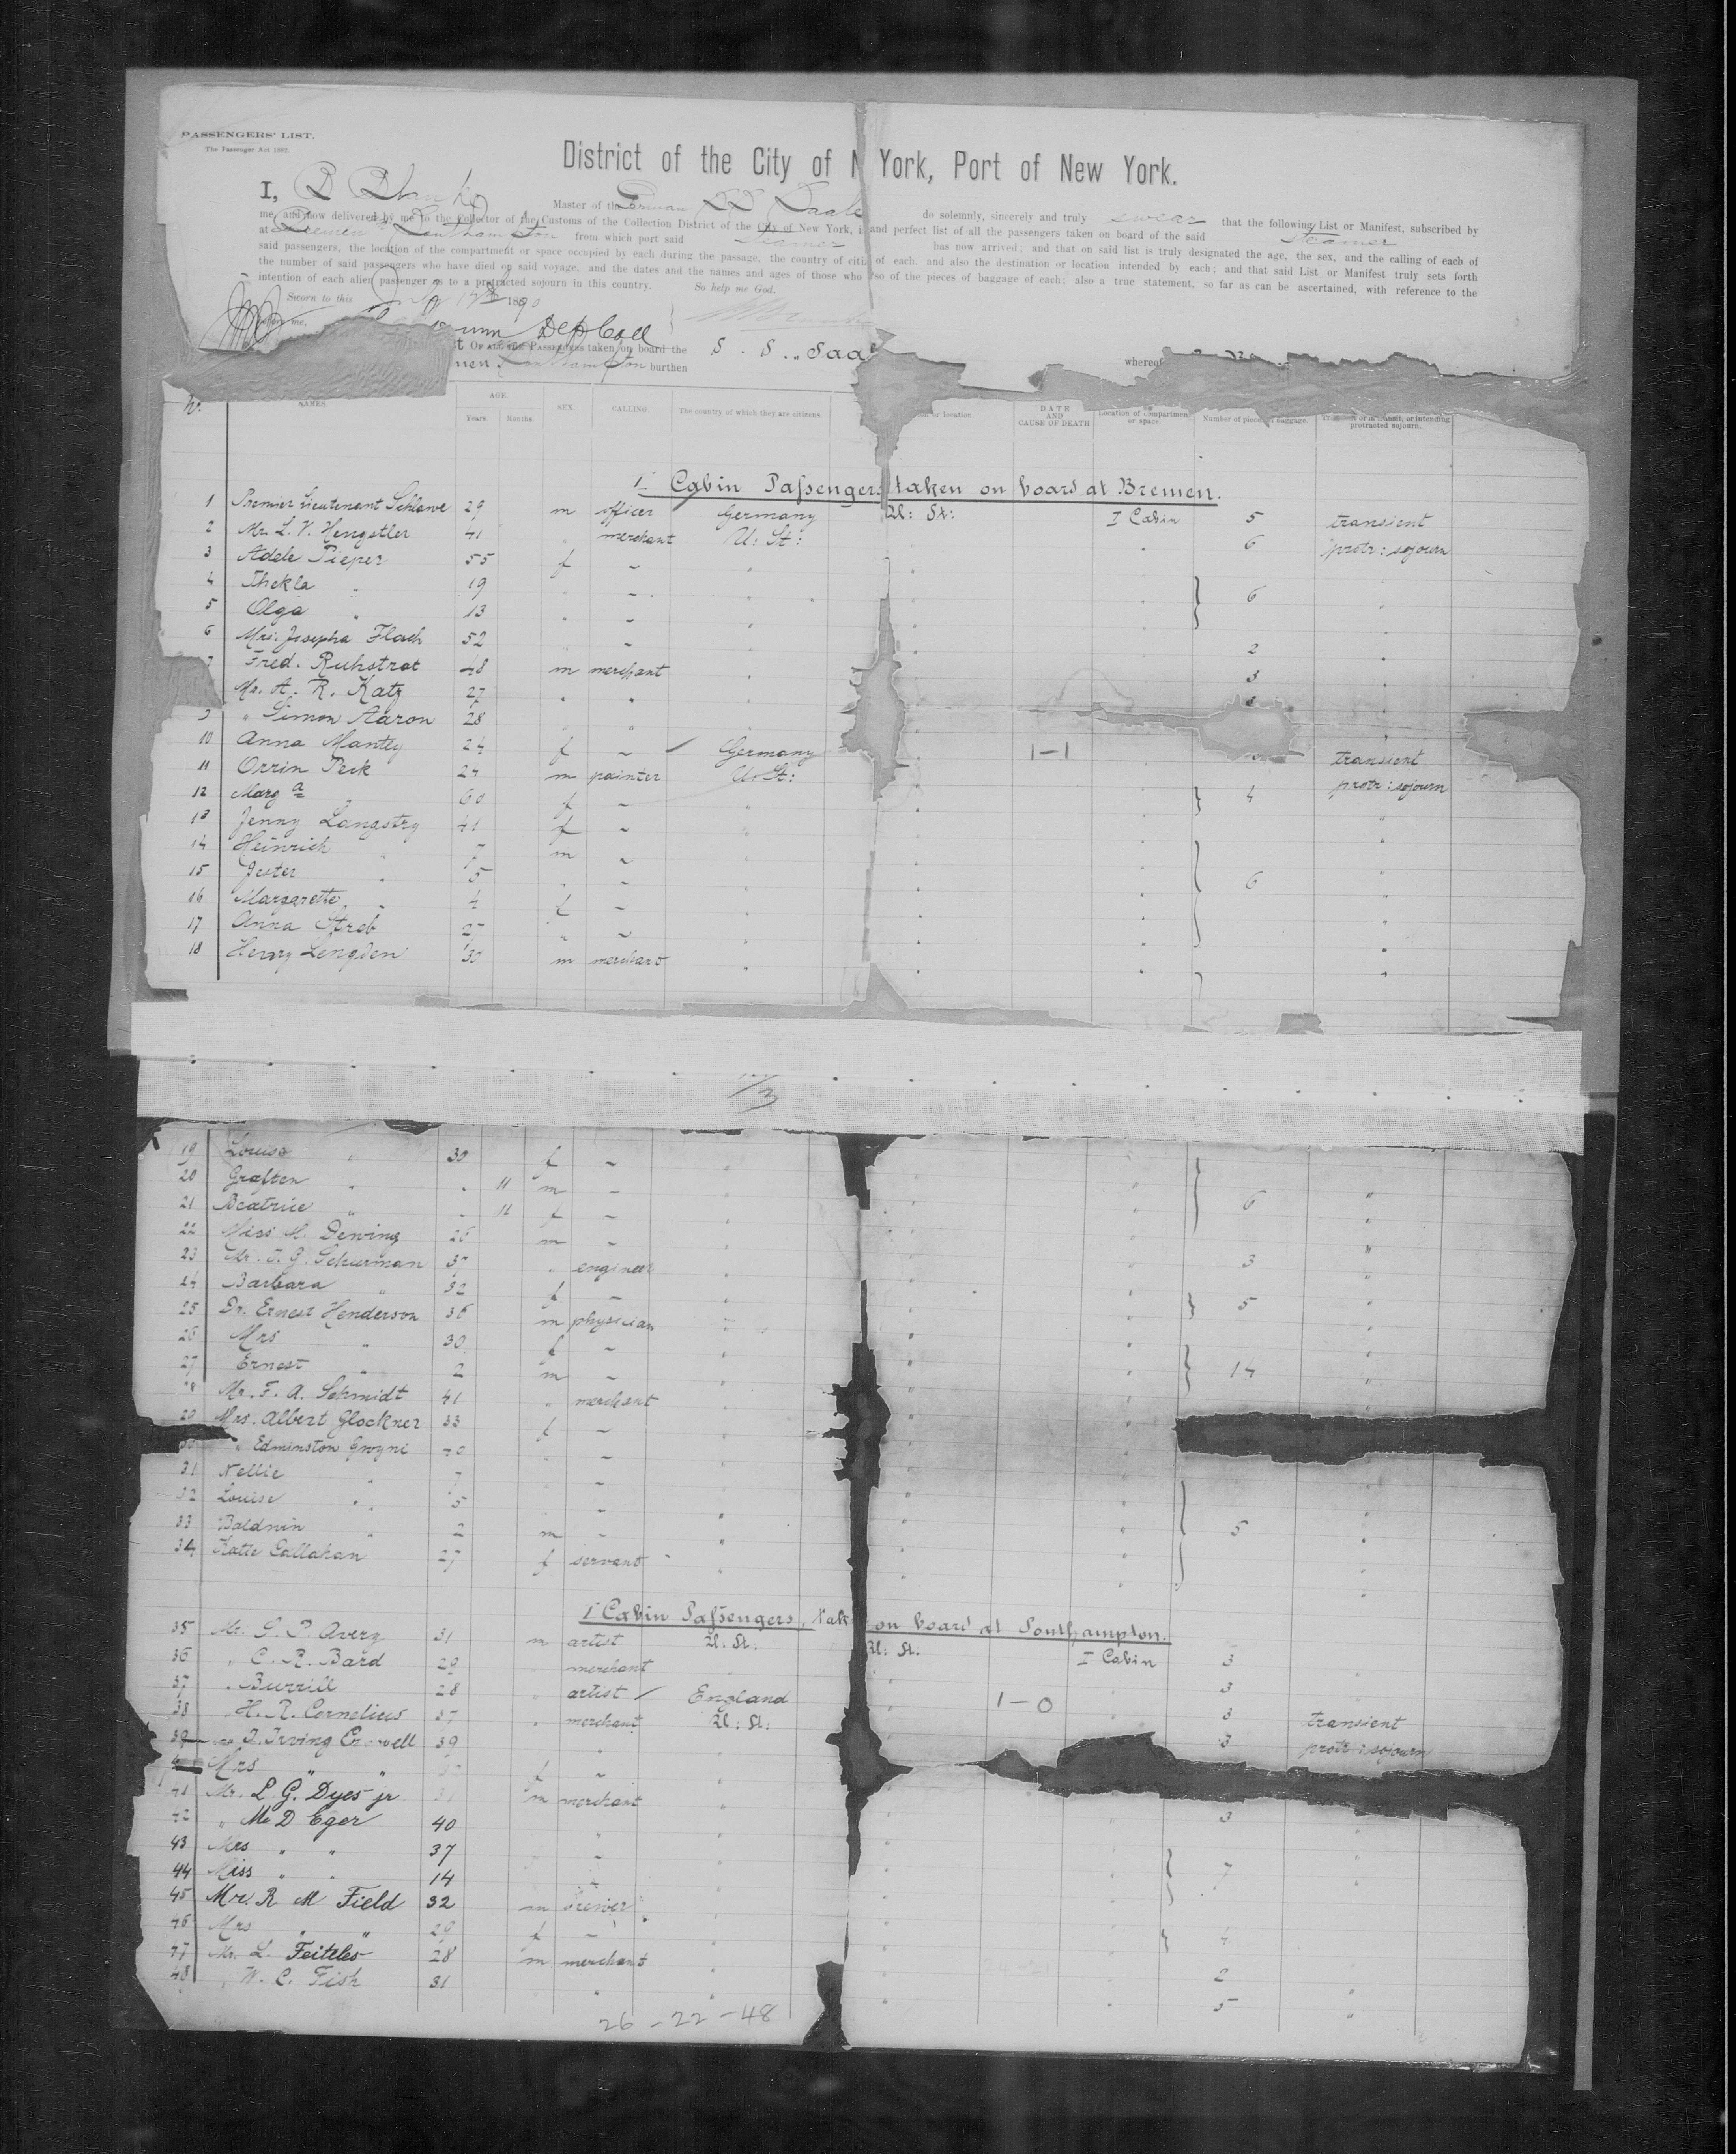 PASSENGERS' LIST.
The Passenger Act 1882.
District of the City of N York, Port of New York.
I, Master of the German SS Saale do solemnly, sincerely and truly swear that the following List or Manifest, subscribed by
me, and now delivered by me to the Collector of the Customs of the Collection District of the City of New York, is and perfect list of all the passengers taken on board of the said steamer
at Bremen & Southampton from which port said steamer has now arrived; and that on said list is truly designated the age, the sex, and the calling of each of
said passengers, the location of the compartment or space occupied by each during the passage, the country of citi of each, and also the destination or location intended by each; and that said List or Manifest truly sets forth
the number of said passengers who have died on said voyage, and the dates and the names and ages of those who also of the pieces of baggage of each; also a true statement, so far as can be ascertained, with reference to the
intention of each alien passenger as to a protracted sojourn in this country. So help me God.
Sworn to this 1890
before me, Dep Coll
st OF ALL THE PASSENGERS taken on board the S. S. Saa whereof
men Southampton burthen
Nr. NAMES. AGE. Years Months. SEX. CALLING. The country of which they are citizens. or location. DATE AND CAUSE OF DEATH Location of compartment or space. Number of pieces of baggage. or in transit, or intending protracted sojourn.
I Cabin Passengers taken on board at Bremen.
1 Premier Lieutenant Schlawe 29 m officer Germany U: St: I Cabin 5 transient
2 Mr. L. V. Hengstler 41 " merchant U: St: " 6 protr: sojourn
3 Adele Pieper 55 f - "
4 Thekla " 19 " - " 6 "
5 Olga " 13 " - "
6 Mrs. Josepha Flach 52 " - " 2 "
7 Fred. Ruhstrat 48 m merchant " 3 "
Mr. A. R. Katz 27 " " "
9 " Simon Aaron 28 " " "
10 Anna Mantey 24 f - Germany 1-1 transient
11 Orrin Peck 27 m painter U. St: protr: sojourn
12 Marg a 60 f - " 4 "
13 Jenny Langstry 41 f - "
14 Heinrich " 7 m -
15 Jester " 5 " - " 6 "
16 Margarette " 4 f - "
17 Anna Streb 27 " - "
18 Henry Lengden 30 m merchant "
1/3
19 Louise " 30 f - "
20 Graften " " 11 m - " 6 "
21 Beatrice " " 11 f - "
22 Miss M. Dewing 26 m - "
23 Mr. J. G. Schurman 37 " engineer " 3 "
24 Barbara " 32 f - " 5 "
25 Dr. Ernest Henderson 36 m physician "
26 Mrs " 30 f - "
27 Ernest " 2 m - " 14 "
28 Mr. F. A. Schmidt 41 " merchant "
29 Mrs. Albert Glockner 33 f - "
30 " Edminston Gwyne 40 - "
31 Nellie " 7 - "
32 Louise " 5 - "
33 Baldwin " 2 m - " 5 "
34 Katie Callahan 27 f servant "
I Cabin Passengers, tak on board at Southampton.
35 Mr. S. P. Avery 31 m artist U: St: U: St. I Cabin 3
36 " C. R. Bard 29 merchant " 3 "
37 " Burrill 28 " artist England 1-0 3 transient
38 H. R. Cornelius 37 " merchant U: St: 3 protr: sojourn
39 J. Irving Cr well 39 "
Mrs " " f - "
41 Mr. L. G. Dyes jr m merchant "
42 " Mc D Eger 40 " " 3 "
43 Mrs " " 37 - "
44 Miss " " 14 " 7 "
45 Mr. R M Field 32 m brewer "
46 Mrs " " 29 f - " 4
47 Mr. L. Feiteles 28 m merchant " 2 "
48 " W. C. Fish 31 " " 5 "
26 - 22 - 48